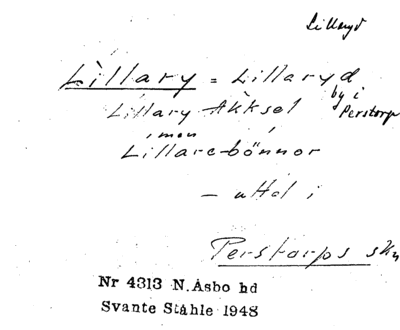 Lillaryd
Lillary = Lillaryd
by i
Lillary Akksel Perstorp
imon
Lillare-bönnor
- uttal i
Perstorps skn
Nr 4313 N.Åsbo hd
Svante Ståhle 1948